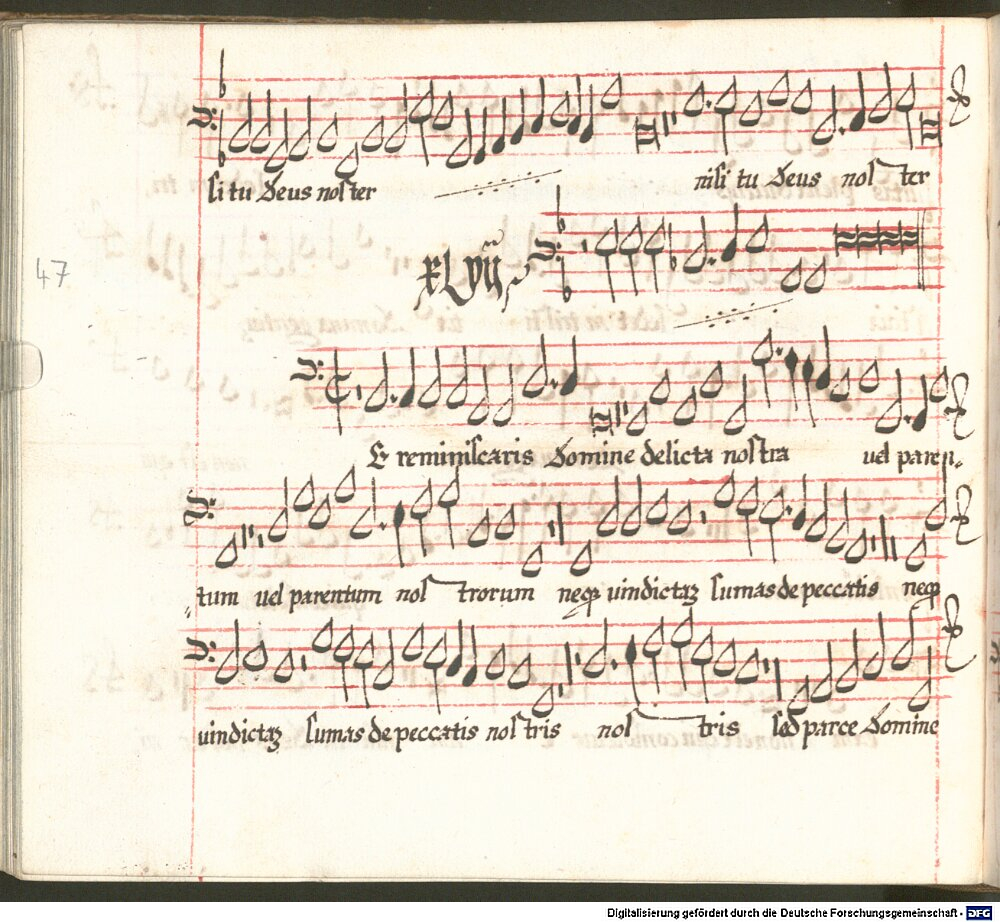 si tu deus noster nisi tu deus noster
xlvii
47
E reminiscaris domine delicta nostra vel paren-
tum vel parentum nostrorum neqꝫ vindictaꝫ sumas de peccatis neqꝫ
vindictaꝫ sumas de peccatis nostris nostris sed parce domine
Digitalisierung gefördert durch die Deutsche Forschungsgemeinschaft - DFG